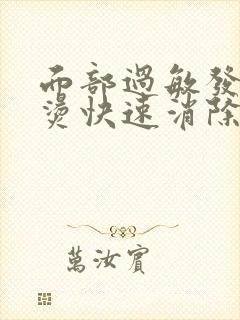 面部過敏發
燙快速消除
萬汝賓